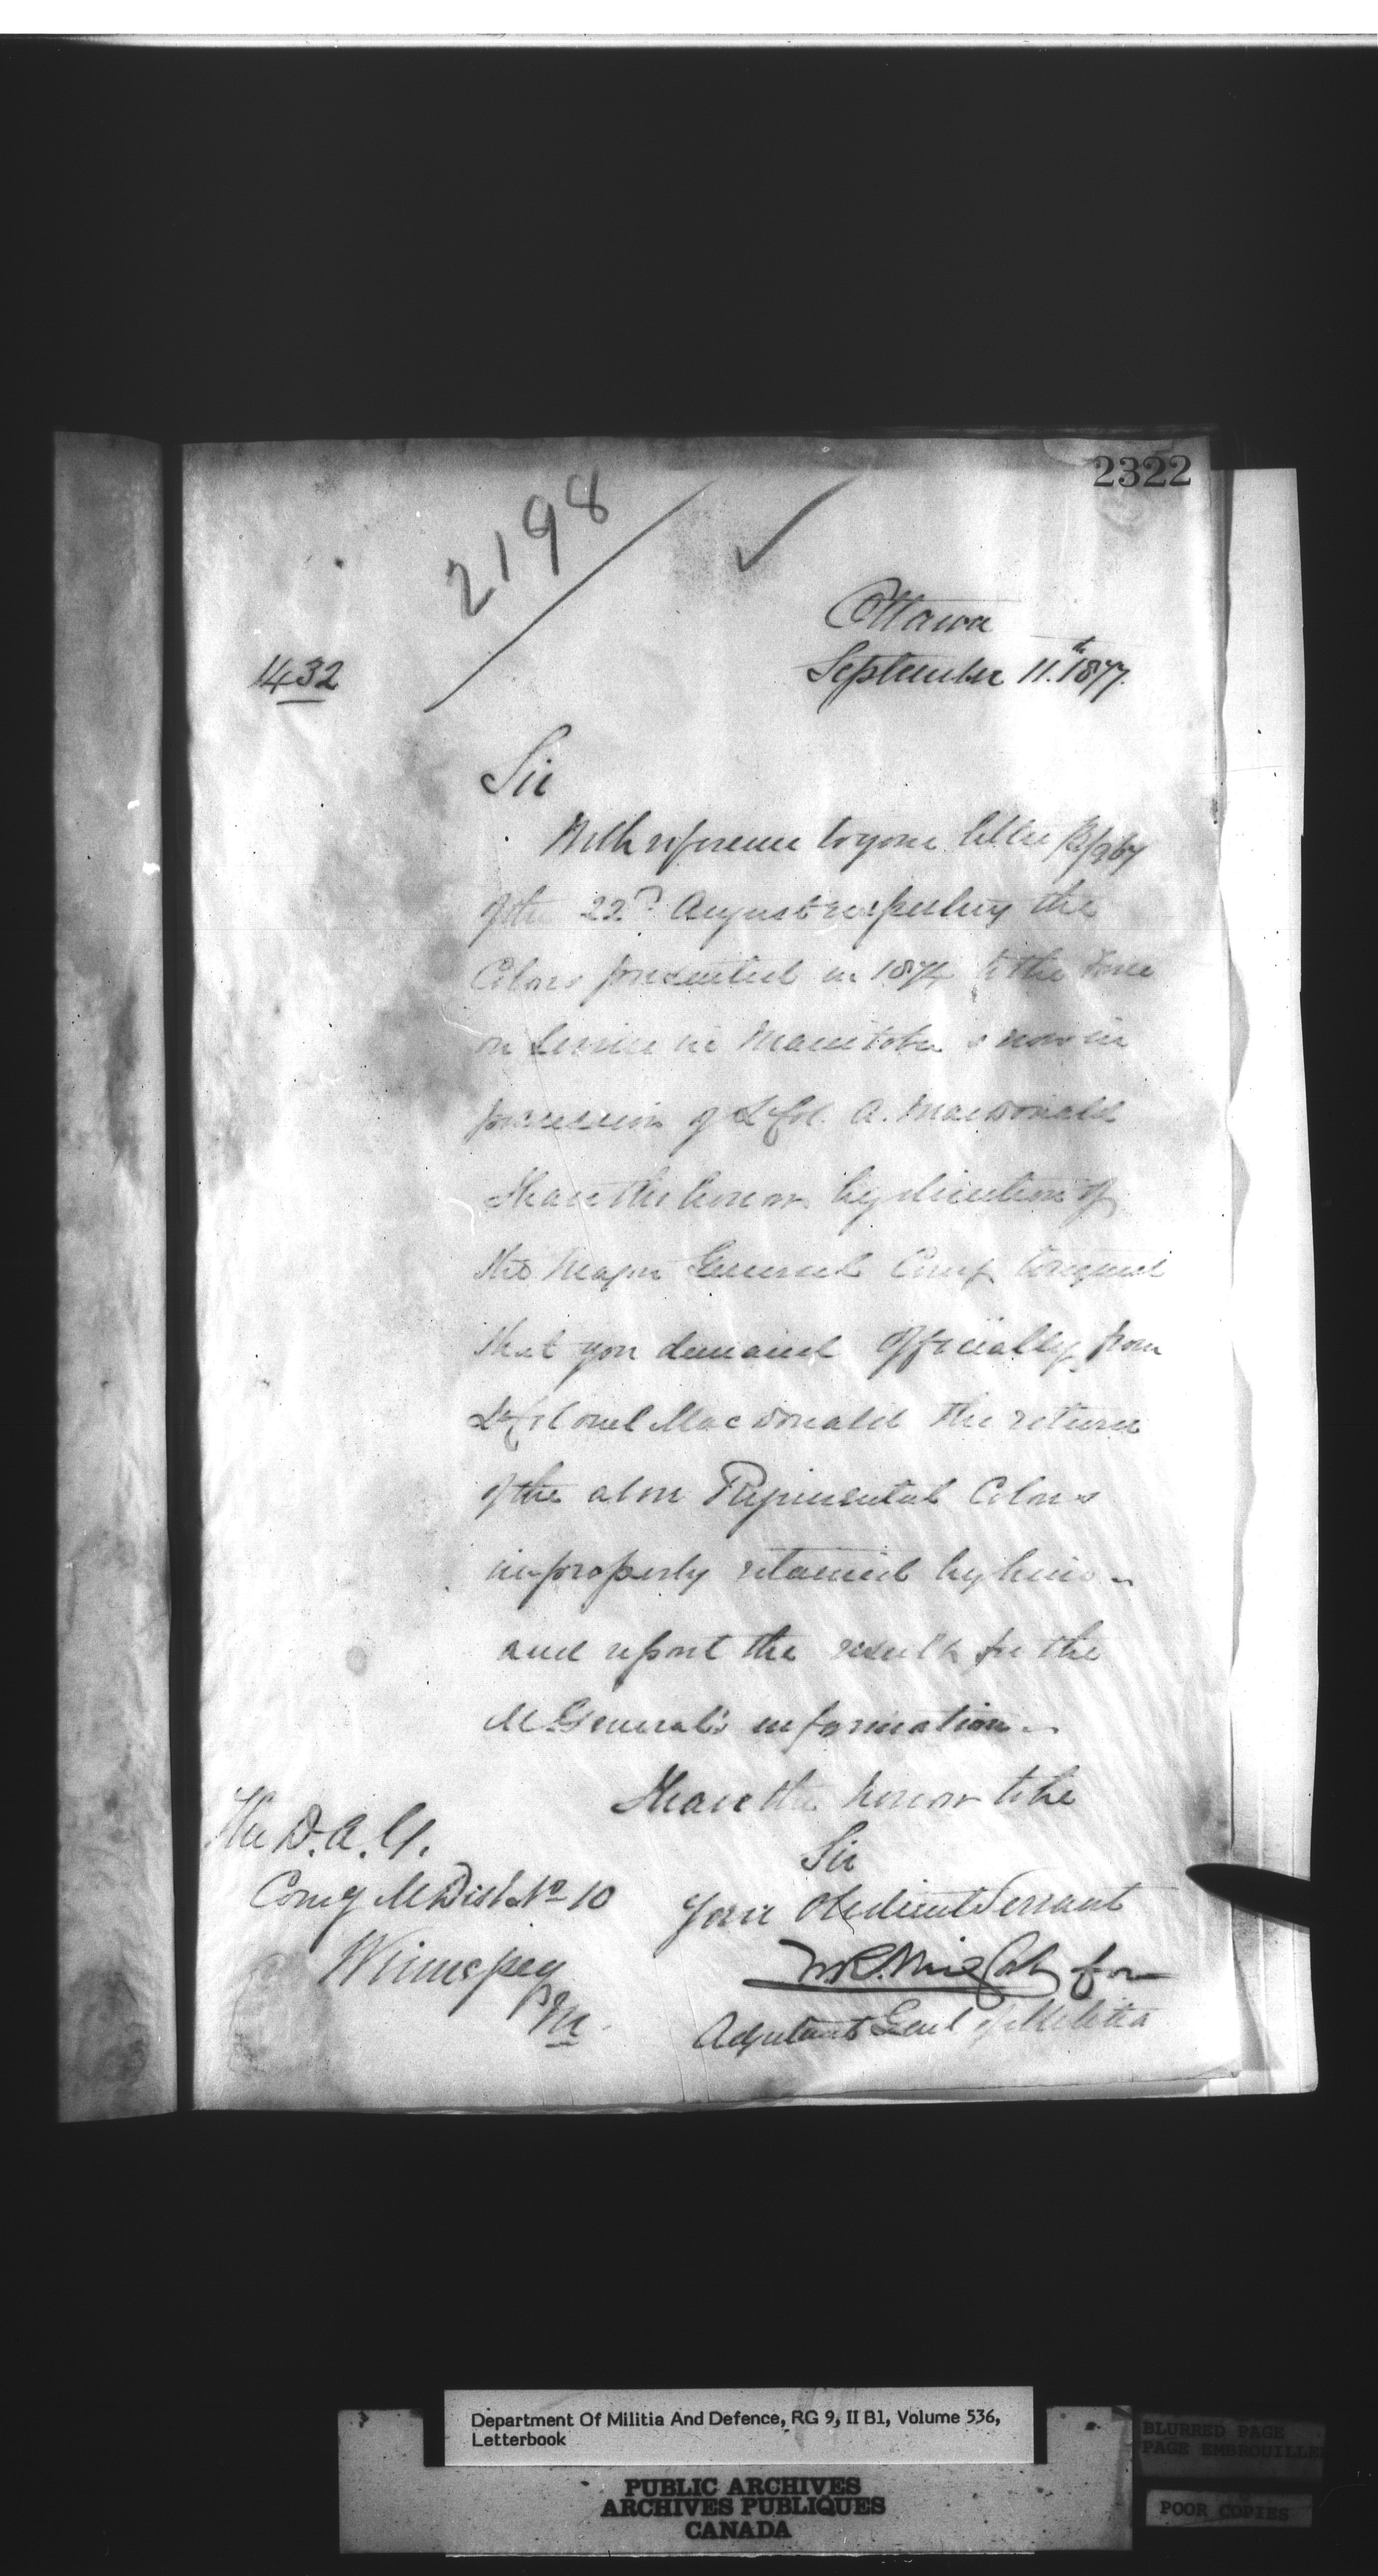 2322
2198
Ottawa
September 11th 1877.
1432
Sir
With reference to your letter
of the 22nd August respecting the
Colors presented in 1874 to the Force
on Service in Manitoba & now in
possession of Lt Col. A. MacDonald
I have the honor by direction of
the Major General Comg to request
that you demand officially from
Lt Colonel MacDonald the return
of the above Regimental Colors
improperly retained by him
and report the result for the
M General's information
I have the honor to be
Sir
Your Obedient Servant
for
Adjutant Genl of Militia
The D.A.G.
Comg M Dist No 10
Winnipeg
M
Department Of Militia And Defence, RG 9, II B1, Volume 536,
Letterbook
PUBLIC ARCHIVES
ARCHIVES PUBLIQUES
CANADA
BLURRED PAGE
PAGE EMBROUILLE
POOR COPIES